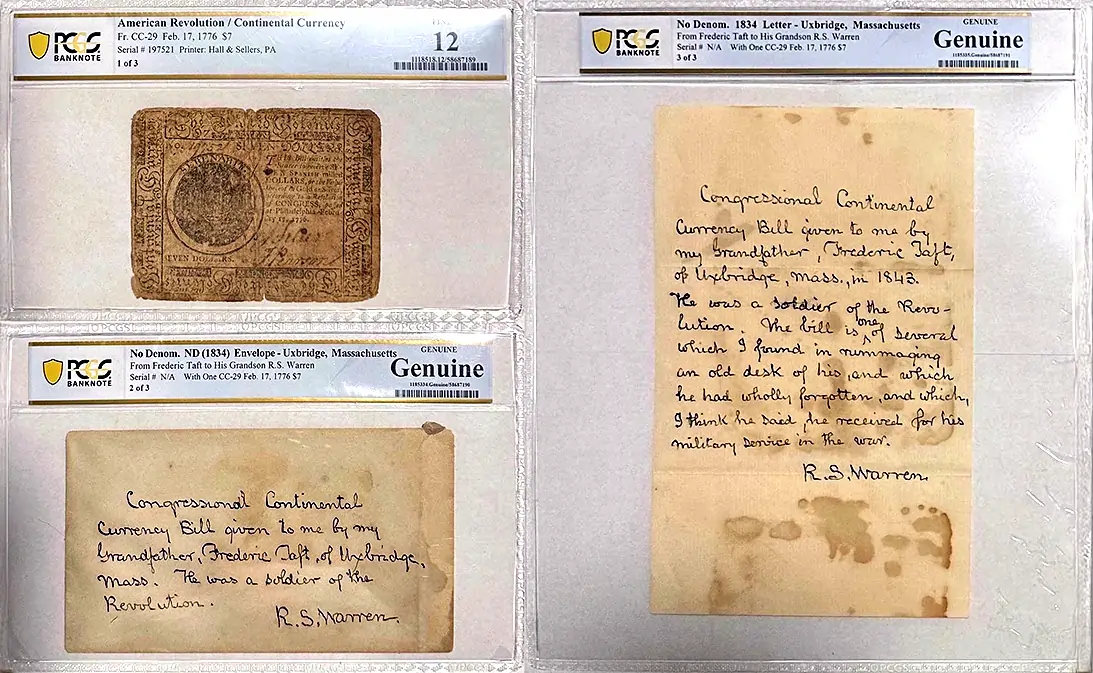 American Revolution / Continental Currency
Fr. CC-29 Feb. 17, 1776 $7
Serial # 197521 Printer: Hall & Sellers, PA
1 of 3
PCGS
BANKNOTE
12
1118518.12/58687189
SEVEN DOLLARS.
DOLLARS
CONGRESS
at Philadelphia
No Denom. ND (1834) Envelope - Uxbridge, Massachusetts
From Frederic Taft to His Grandson R.S. Warren
Serial # N/A With One CC-29 Feb. 17, 1776 $7
2 of 3
PCGS
BANKNOTE
GENUINE
Genuine
1185334.Genuine/58687190
Congressional Continental
Currency Bill given to me by my
Grandfather, Frederic Taft, of Uxbridge,
Mass. He was a soldier of the
Revolution.
R.S. Warren.
No Denom. 1834 Letter - Uxbridge, Massachusetts
From Frederic Taft to His Grandson R.S. Warren
Serial # N/A With One CC-29 Feb. 17, 1776 $7
3 of 3
PCGS
BANKNOTE
GENUINE
Genuine
1185335.Genuine/58687191
Congressional Continental
Currency Bill given to me by
my Grandfather, Frederic Taft,
of Uxbridge, Mass., in 1843.
He was a soldier of the Revo-
lution. The bill is one of several
which I found in rummaging
an old desk of his, and which
he had wholly forgotten, and which,
I think he said, he received for his
military service in the war.
R.S. Warren.